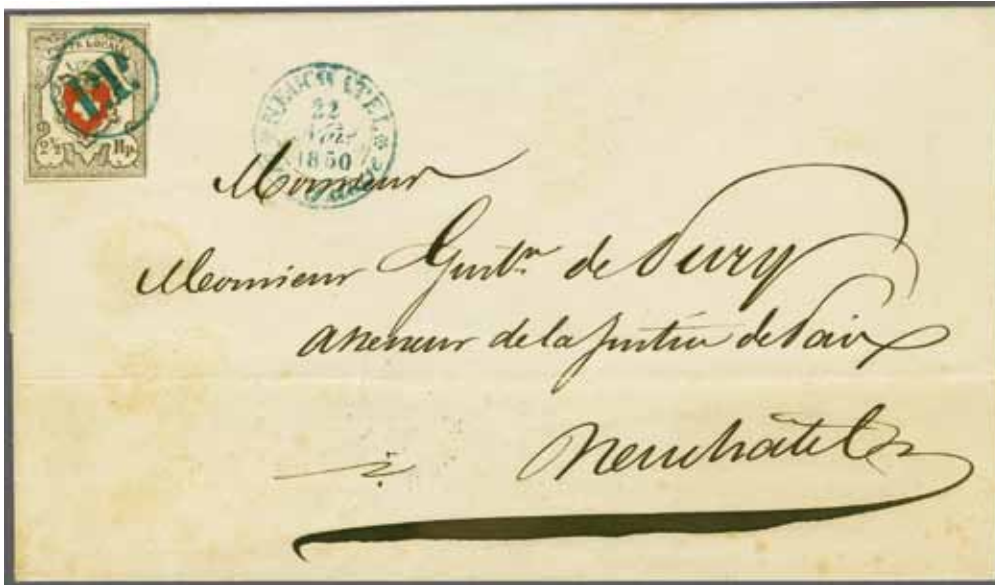 POSTE LOCALE
PP.
2½ Rp.
NEUCHATEL
22
1850
Monsieur
Monsieur de Pury
de la Justice de Paix
Neuchâtel